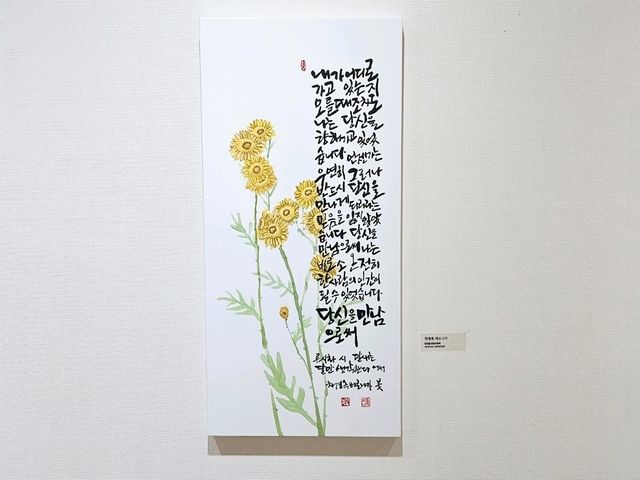 내가 어디로
가고 있는지
모를 때조차도
나는 당신을
향해 가고 있었
습니다. 언젠가는
우연히 그러나
반드시 당신을
만나게 되리라는
믿음을 잊지 않았
습니다 당신을
만남으로써 나는
비로소 온전히
한 사람의 인간이
될 수 있었습니다.
당신을 만남
으로써
류시화 시
달만 생각한다 에서